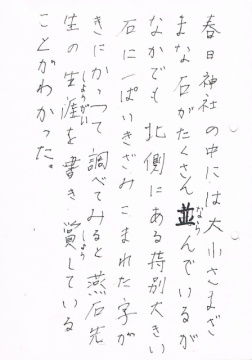 春日神社の中には大小さまざ
まな石がたくさん並んでいるが
なかでも北側にある特別大きい
石に一ぱいきざみこまれた字が
きにかかって調べてみると燕石先
生の生涯を書き賞している
ことがわかった。
なら
しょうがい
しょう